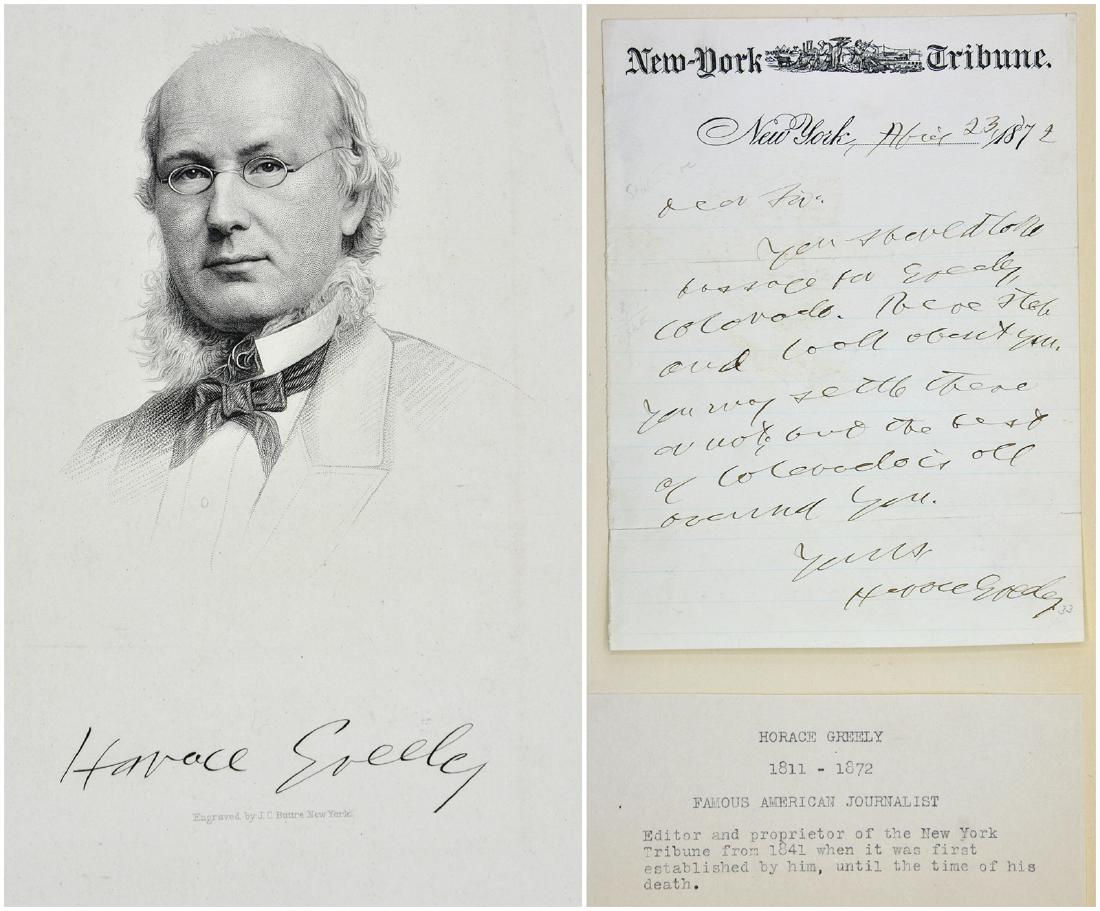 Horace Greeley
Engraved by J.C. Buttre New York.
New-York Tribune.
New York, April 23, 1872
Dear Sir:
You should take
passage for Greeley
Colorado. There stop
and look about you.
You may settle there
or not, but the best
of Colorado is all
around you.
Yours
Horace Greeley
33
HORACE GREELY
1811 - 1872
FAMOUS AMERICAN JOURNALIST
Editor and proprietor of the New York
Tribune from 1841 when it was first
established by him, until the time of his
death.